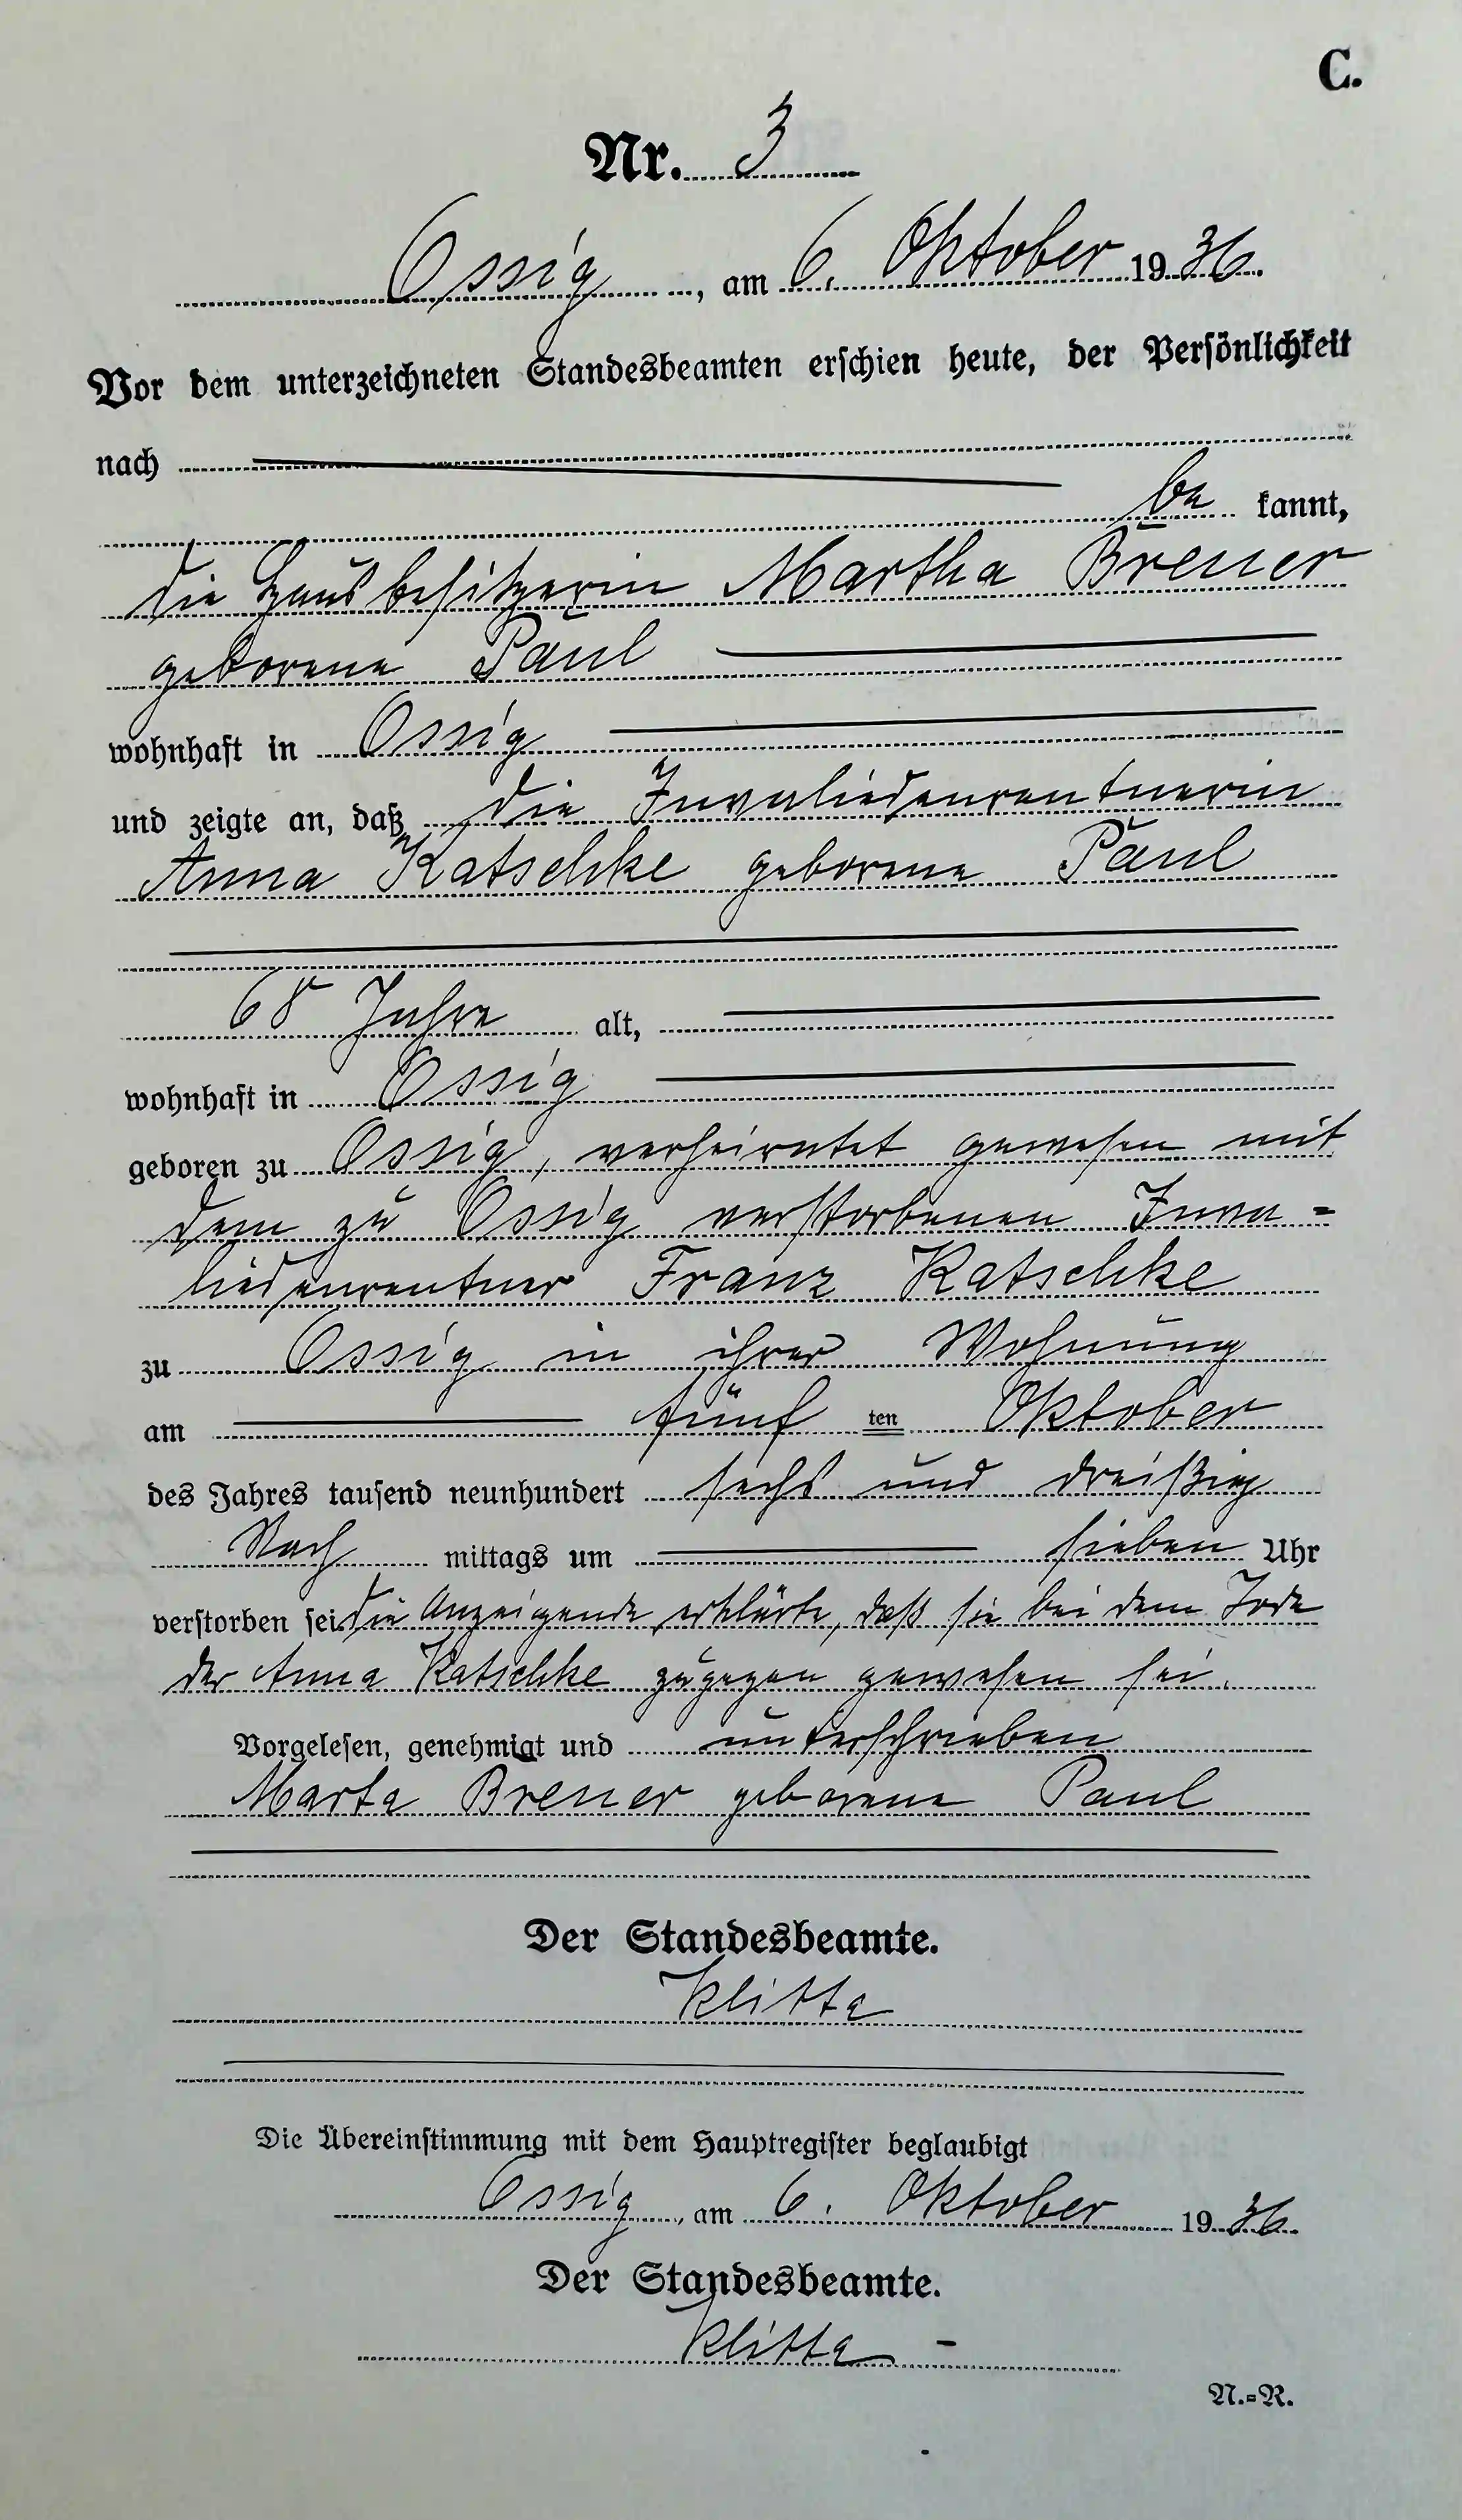 C.
Nr. 3
Ossig, am 6. Oktober 1936.
Vor dem unterzeichneten Standesbeamten erschien heute, der Persönlichkeit
nach
be kannt,
die Hausbesitzerin Martha Breuer
geborene Paul
wohnhaft in Ossig
und zeigte an, daß die Invaliedenrentnerin
Anna Katschke geborene Paul
68 Jahre alt,
wohnhaft in Ossig
geboren zu Ossig, verheiratet gewesen mit
dem zu Ossig verstorbenen Inva=
liedenrentner Franz Katschke
zu Ossig in ihrer Wohnung
am fünf ten Oktober
des Jahres tausend neunhundert sechs und dreißig
Nach mittags um sieben Uhr
verstorben sei. die Anzeigende erklärte, daß sie bei dem Tode
der Anna Katschke zugegen gewesen sei.
Vorgelesen, genehmigt und unterschrieben
Marta Breuer geborene Paul
Der Standesbeamte.
Klitta
Die Übereinstimmung mit dem Hauptregister beglaubigt
Ossig, am 6. Oktober 1936.
Der Standesbeamte.
Klitta -
N.=R.